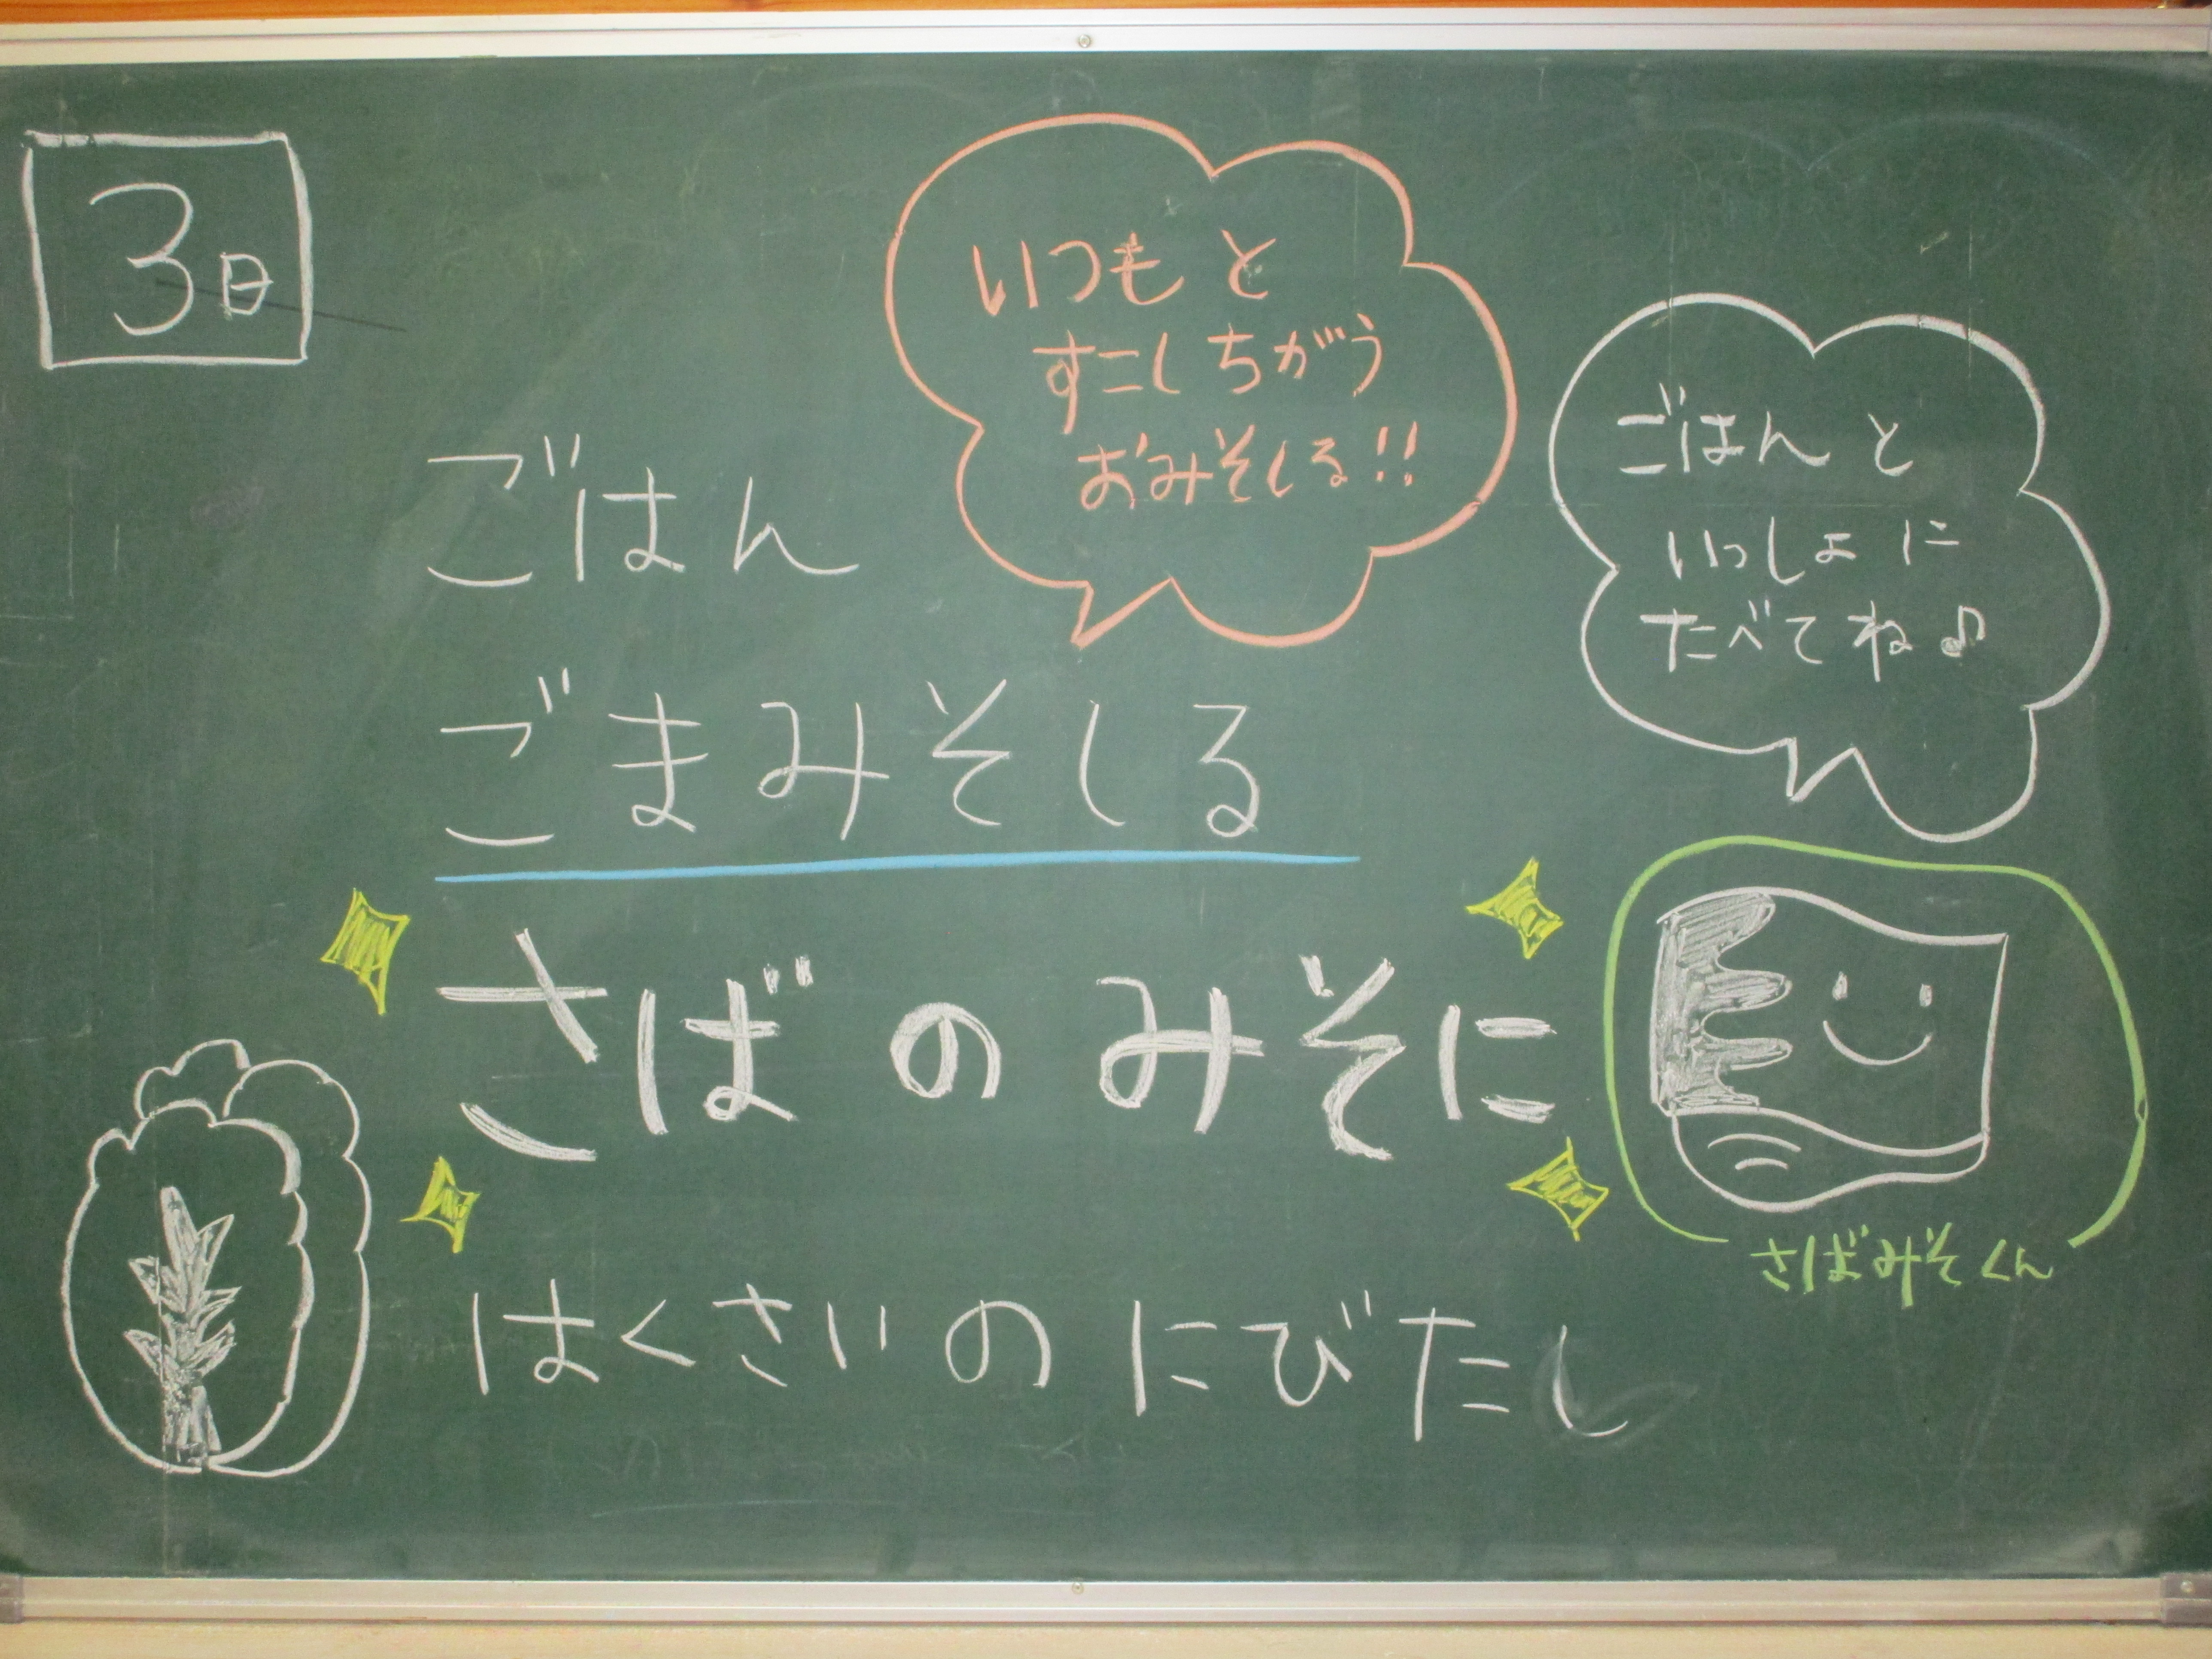 3日
いつもと
すこしちがう
おみそしる!!
ごはんと
いっしょに
たべてね♪
ごはん
ごまみそしる
さばのみそに
さばみそくん
はくさいのにびたし